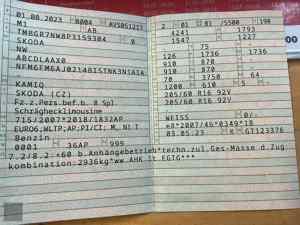 01.08.2023 8004 AVS051217
M1 AB
TMBGR7NW8P3159304 0
SKODA
NW
ABCDLAAX0
KAMIQ
SKODA (CZ)
Fz.z.Pers.bef.b. 8 Spl.
Schräghecklimousine
715/2007*2018/1832AP
EURO6;WLTP;AP;PI/CI; M, N1 I
Benzin
0001 36AP 999
7.2/8.2:+60 b.Anhängebetrieb*techn.zul.Ges-Masse d.Zug
kombination:2936kg*ww.AHK lt EGTG***
2 01 81 /5500 198
4241 1793
1547 1227
75
126 1736 1736
910 870
910 870
70 3750 64
1200 610 5
205/60 R16 92V
205/60 R16 92V
WEISS 0/-
e8*2007/46*0349*18
03.05.23 K GT123376